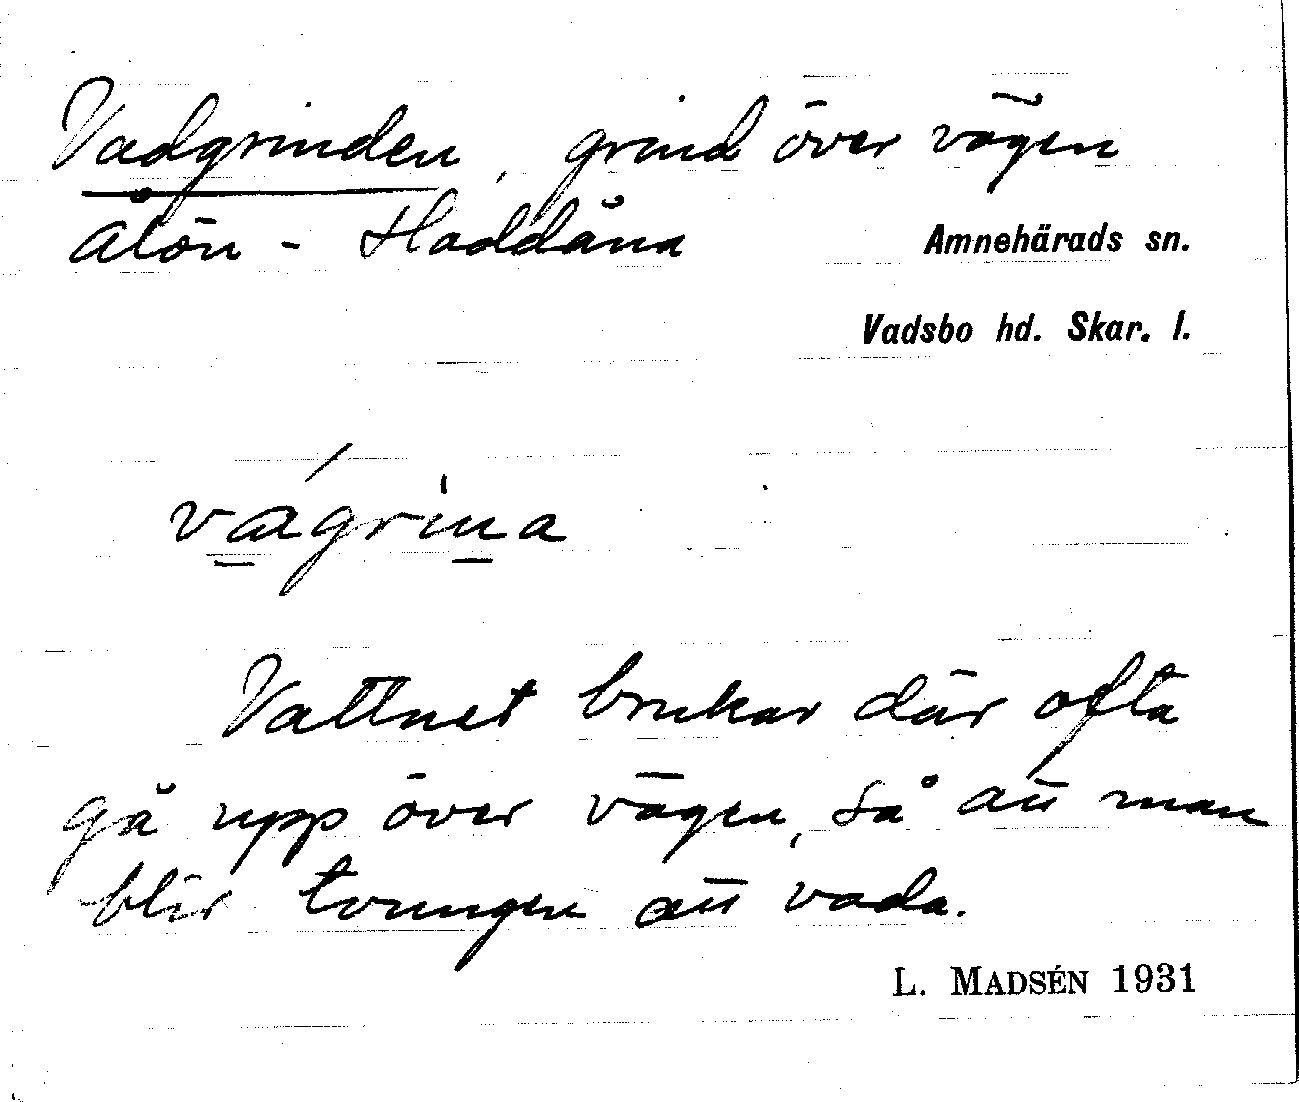 Vadgrinden, grind över vägen
Ålön - Haddåna
Amnehärads sn.
Vadsbo hd. Skar. l.
vágrìna
Vattnet brukar där ofta
gå upp över vägen, så att man
blir tvungen att vada.
L. MADSÉN 1931